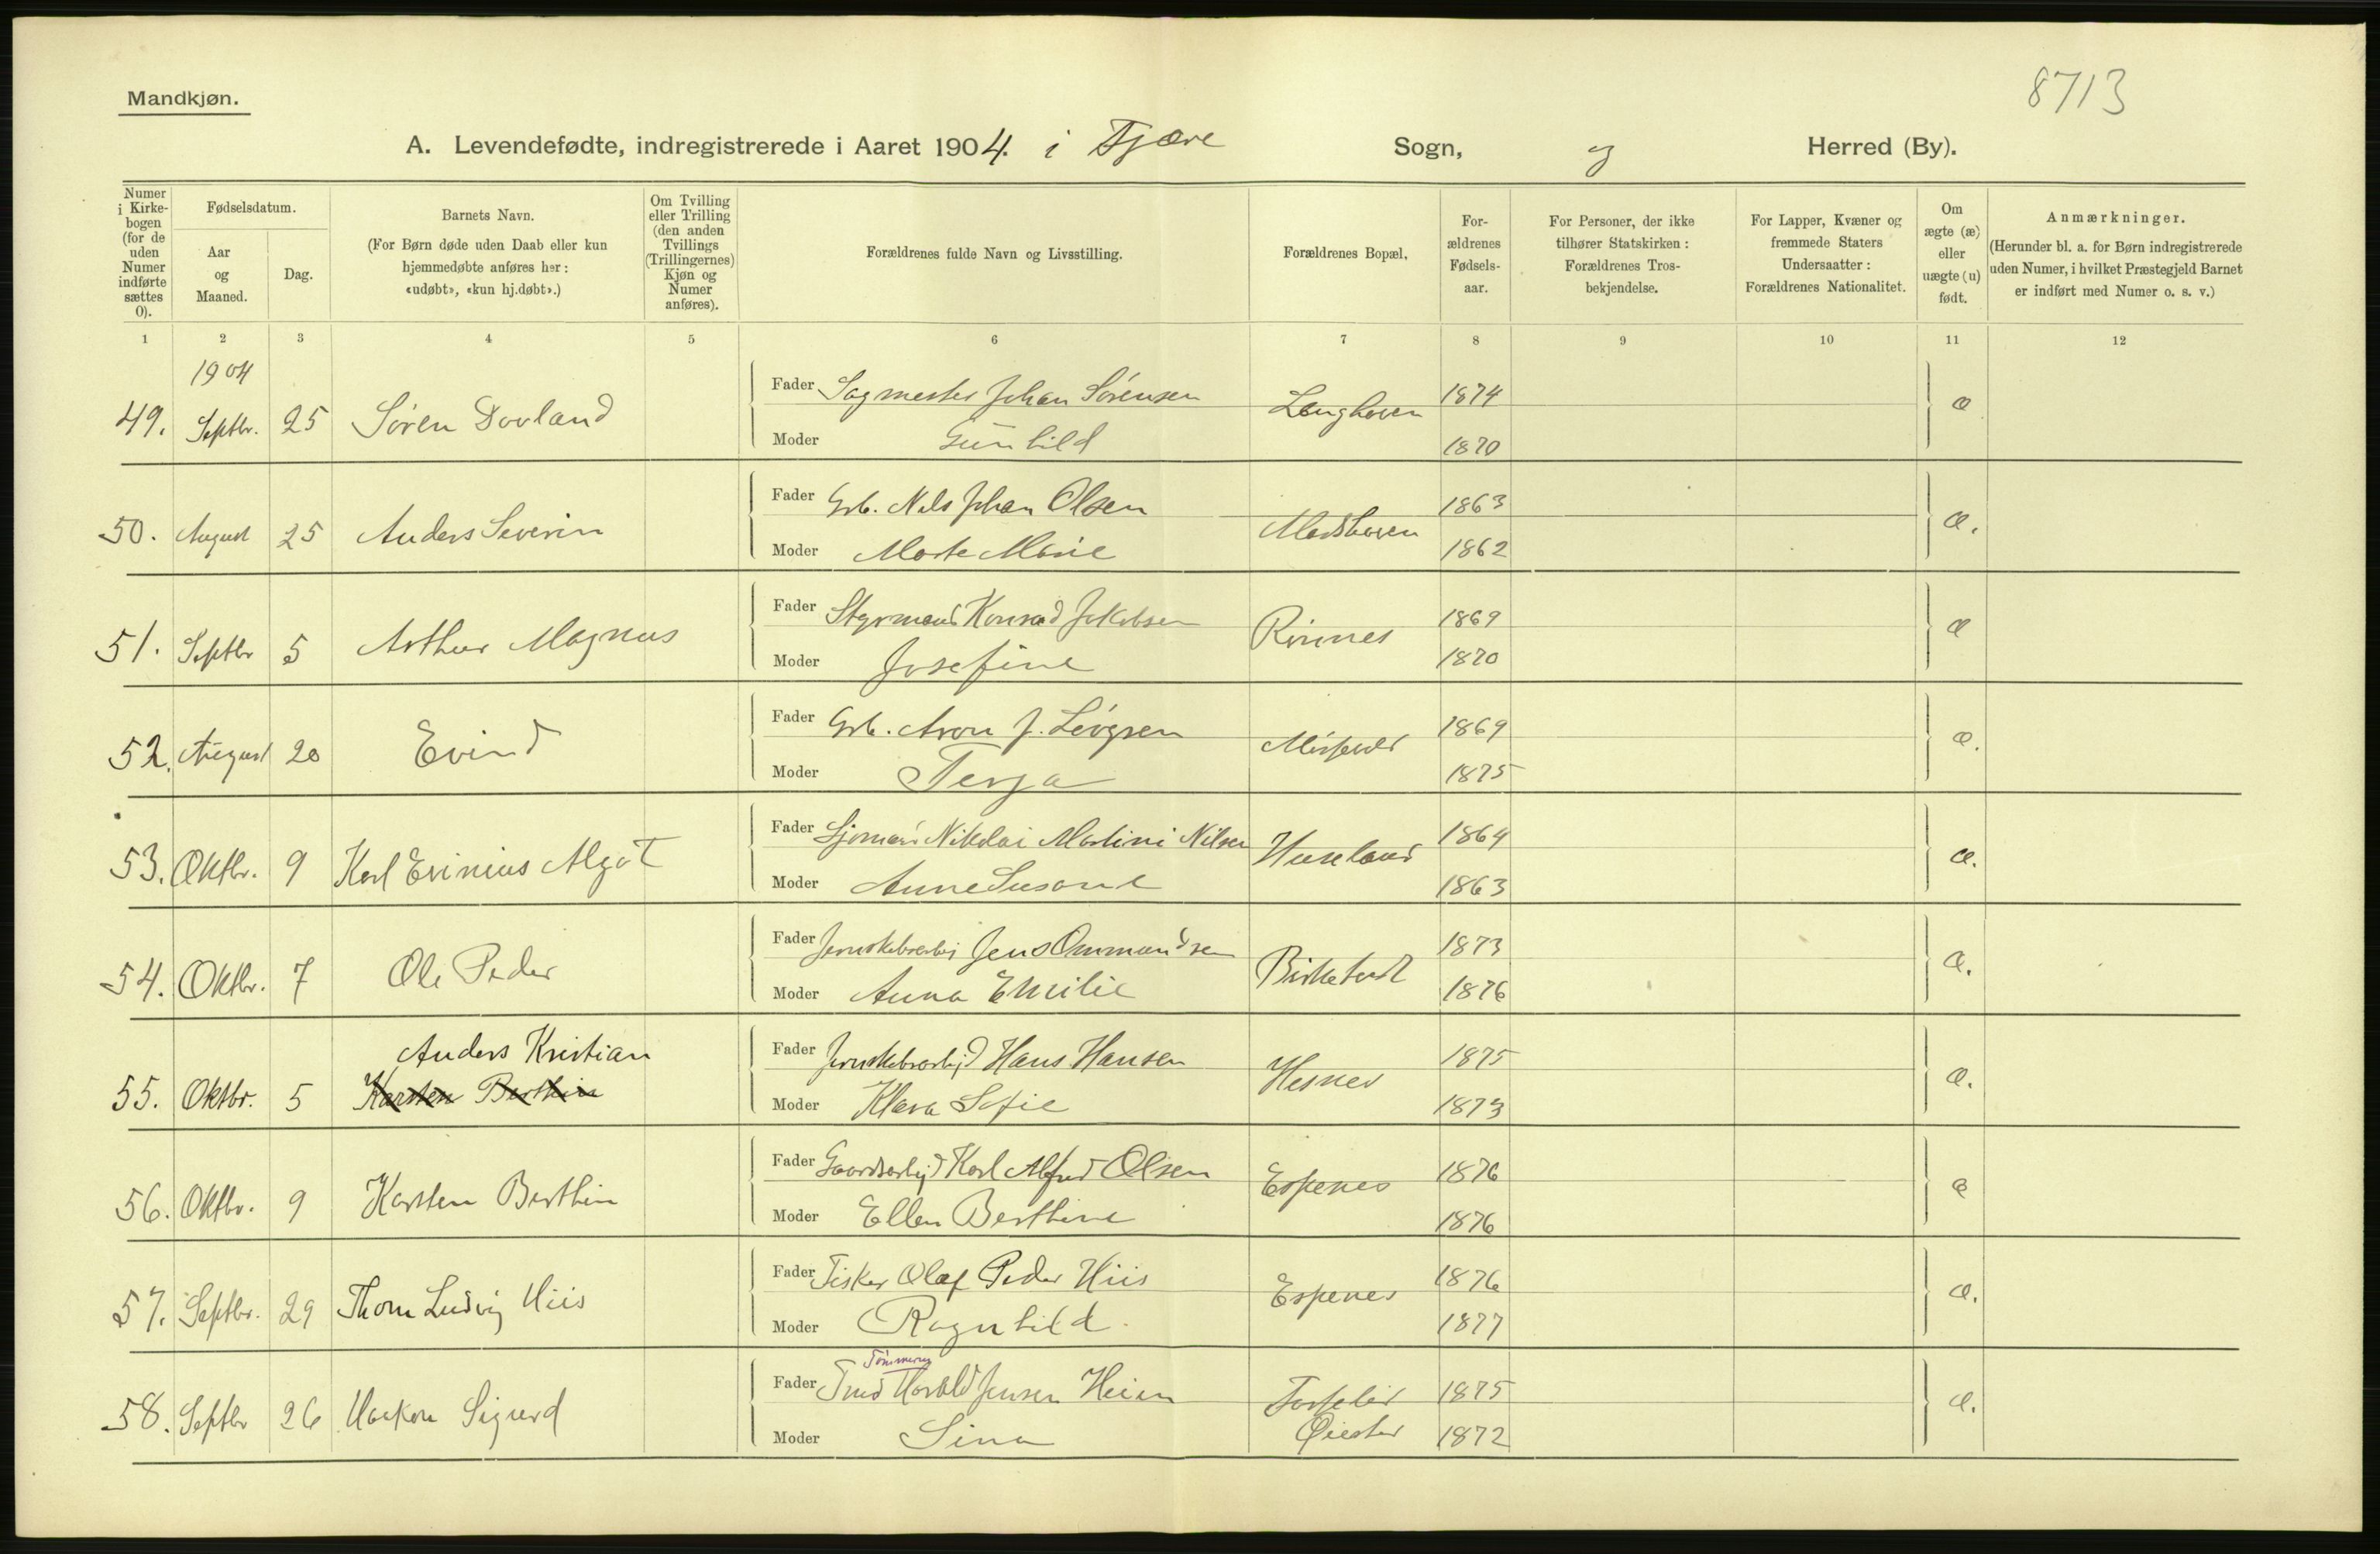 8713
Mandkjøn.
A. Levendefødte, indregistrerede i Aaret 1904. i Fjære Sogn, og Herred (By).
Numer i Kirkebogen (for de uden Numer indførte sættes 0).
Fødselsdatum.
Aar og Maaned.
Dag.
Barnets Navn.
(For Børn døde uden Daab eller kun hjemmedøbte anføres her: «udøbt», «kun hj.døbt».)
Om Tvilling eller Trilling (den anden Tvillings (Trillingernes) Kjøn og Numer anføres).
Forældrenes fulde Navn og Livsstilling.
Forældrenes Bopæl,
Forældrenes Fødselsaar.
For Personer, der ikke tilhører Statskirken: Forældrenes Trosbekjendelse.
For Lapper, Kvæner og fremmede Staters Undersaatter: Forældrenes Nationalitet.
Om ægte (æ) eller uægte (u) født.
Anmærkninger.
(Herunder bl. a. for Børn indregistrerede uden Numer, i hvilket Præstegjeld Barnet er indført med Numer o. s. v.)
1 2 3 4 5 6 7 8 9 10 11 12
1904
49. Septbr. 25 Søren Dovland Fader Sagmester Johan Sörensen 1874 æ
Moder Gunhild 1870
50. August 25 Anders Severin Fader Grb. Nils Johan Olsen 1863 æ.
Moder Marte Marie 1862
51. Septbr 5 Arthur Magnus Fader Styrmand Konrad Jakobsen Rønnes 1869 æ
Moder Josefine 1870
52. August 20 Evind Fader Grb. Aron J. 1869 æ.
Moder Terja 1875
53. Oktbr. 9 Karl Evinius Algot Fader Sjømand Nikolai Martini Nilsen Huseland 1864 æ.
Moder Anne Susane 1863
54. Oktbr. 7 Ole Peder Fader Jens Ommundsen Birketvedt 1873 æ.
Moder Anna Emilie 1876
Anders Kristian
55. Oktbr. 5 Karsten Berthin Fader Hans Hansen Hesnes 1875 æ.
Moder Klara Sofie 1873
56. Oktbr. 9 Karsten Berthin Fader Gaardsarbejd Karl Alfred Olsen Espenes 1876 æ
Moder Ellen Berthine 1876
57. Septbr. 29 Thom Ludvig Hiis Fader Fisker Olaf Peder Hiis Espenes 1876 æ.
Moder Ragnhild. 1877
Tömmerm
58. Septbr 26 Haakon Sigurd Fader Harald Jensen Heim 1875 æ.
Moder Sina Øiestad 1872